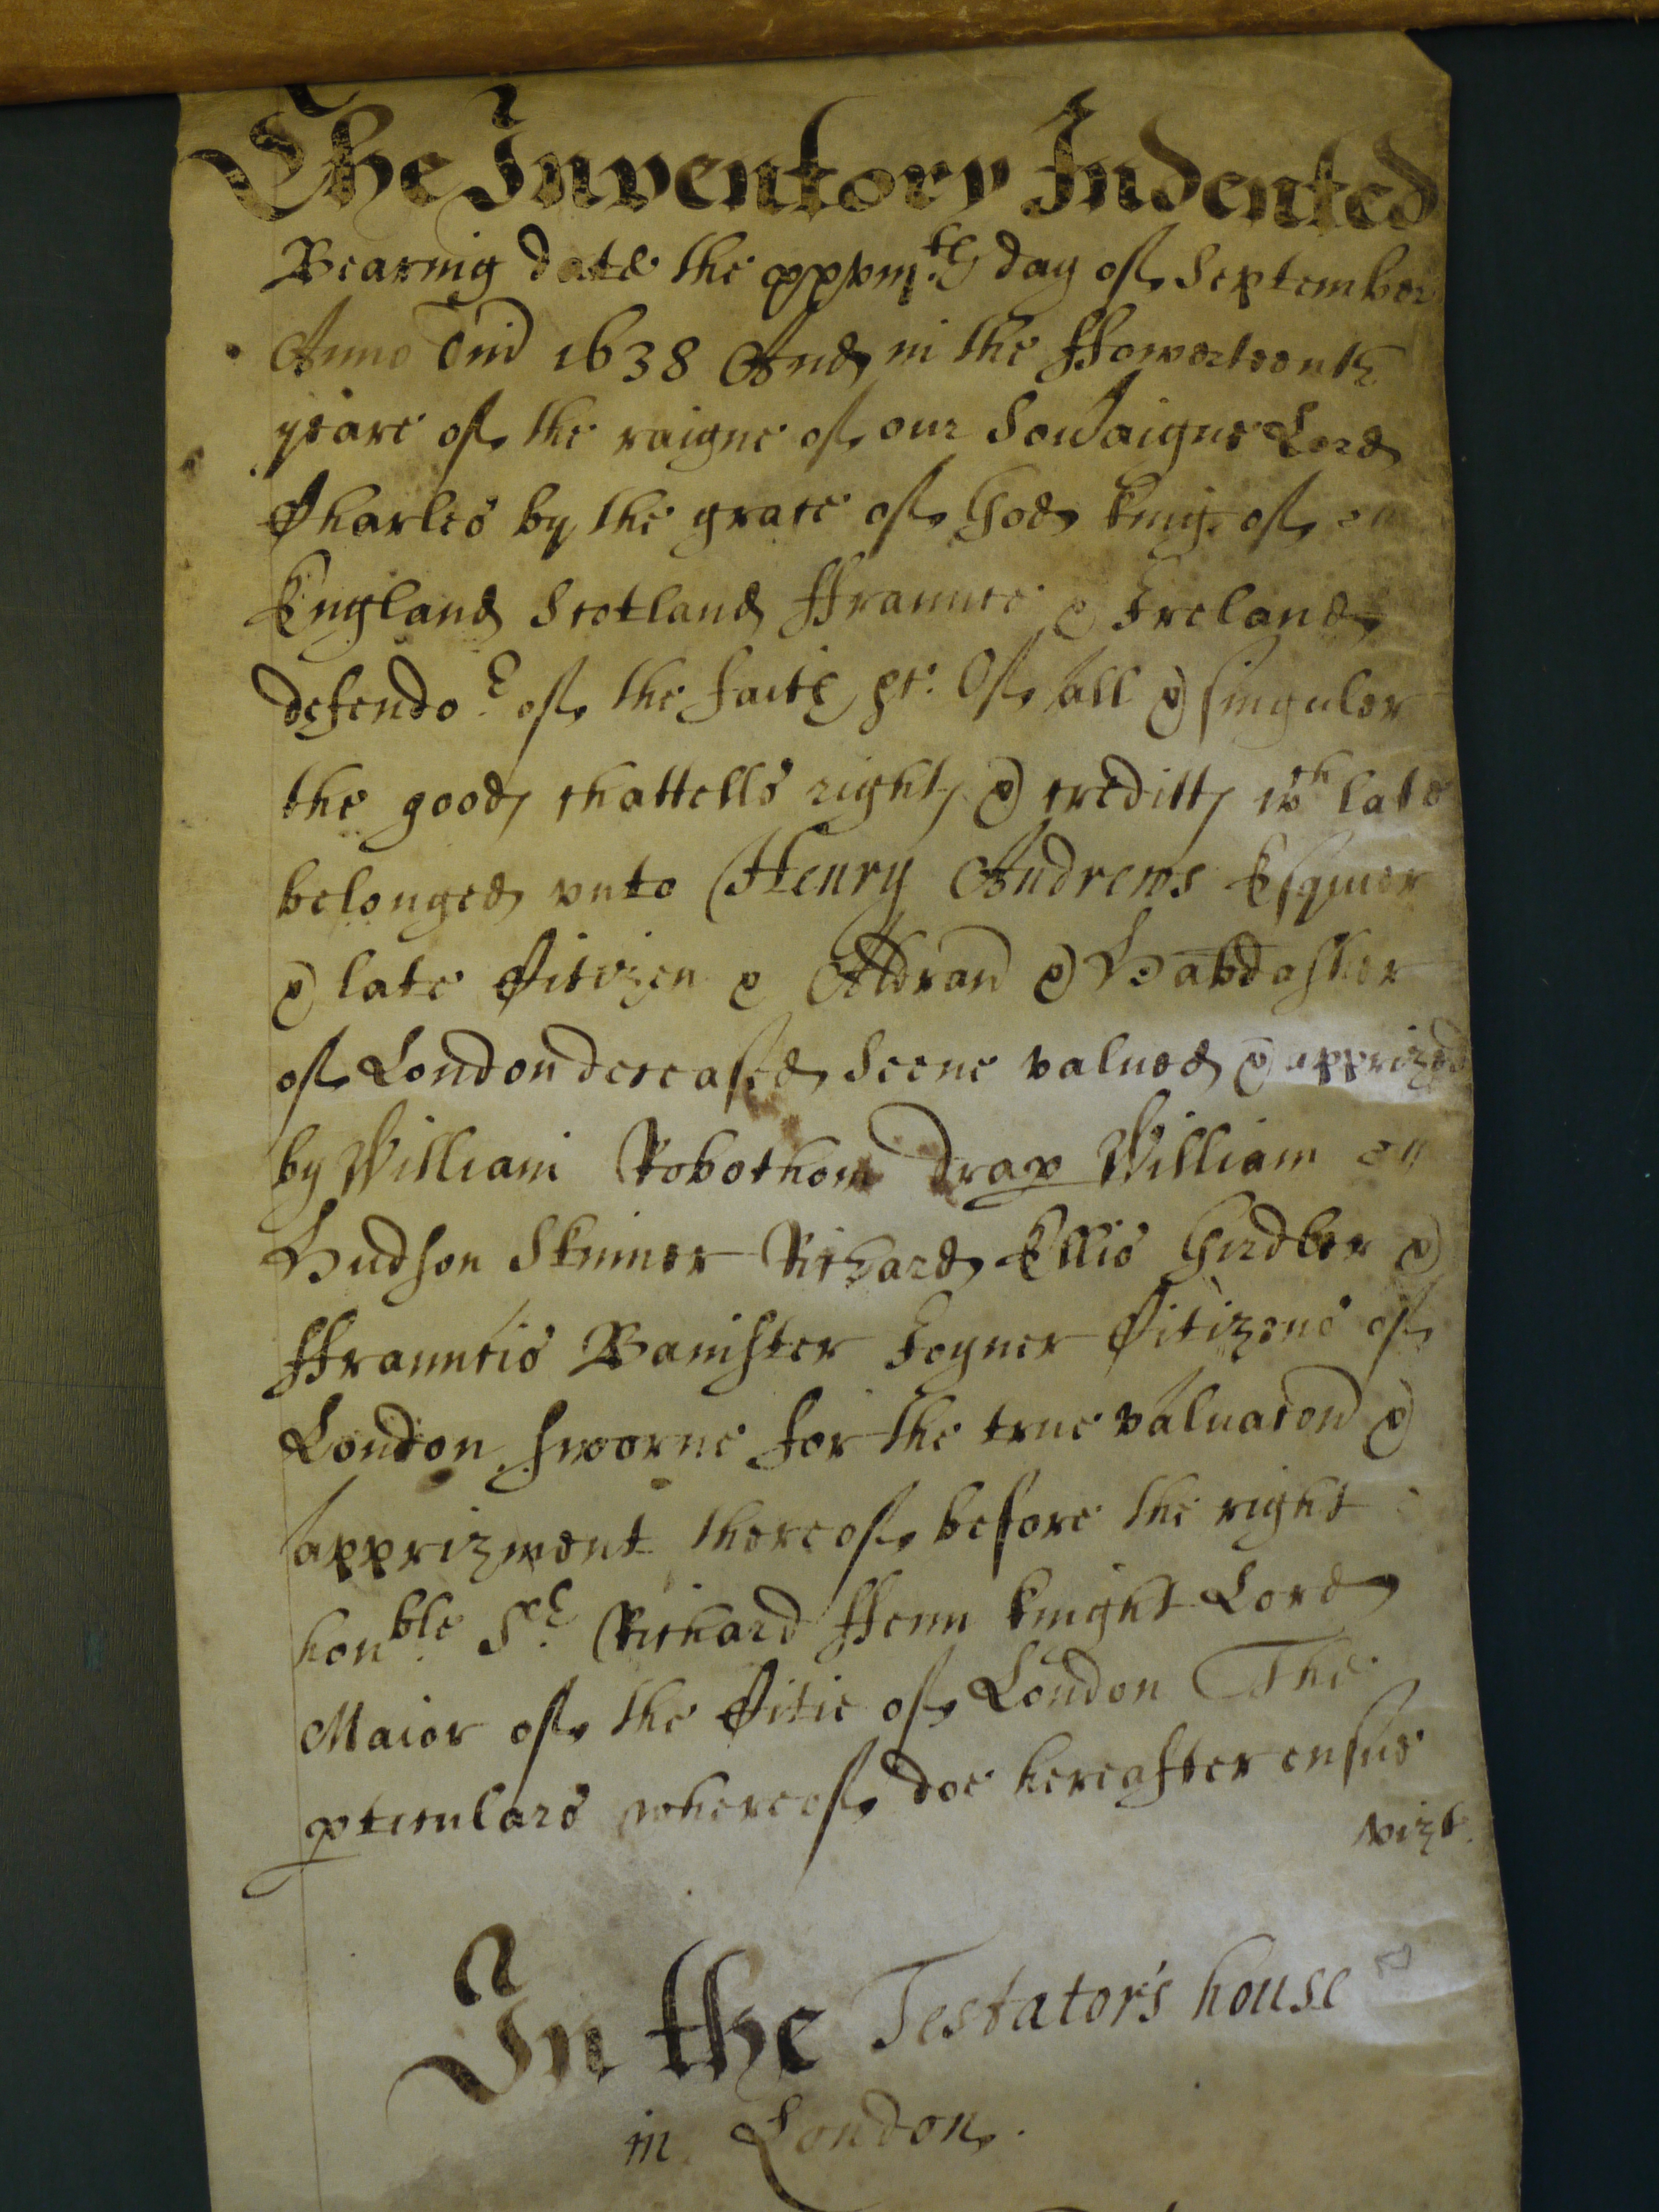 The Inventory Indented
Bearing date the xxviij.th day of September
Anno Dni 1638 And in the ffowerteenth
yeare of the raigne of our Sovaigne Lord
Charles by the grace of God king of
England Scotland ffraunce & Ireland
defendo.r of the faith &c. Of all & singuler
the goods chattells rights & creditts wch late
belonged vnto Henry Andrews Esquier
& late Citizen & Aldran & Habdasher
of London deceased Seene valued & apprized
by William Robothom Drap William
Hudson Skinner Richard Ellis Girdler &
ffrauncis Banister Joyner Citizens of
London sworne for the true valuacon &
apprizment thereof before the right
honble. Sr. Richard ffenn knight Lord
Maior of the Citie of London The
pticulars whereof doe hereafter ensue
vizt.
In the Testator's house
in London.